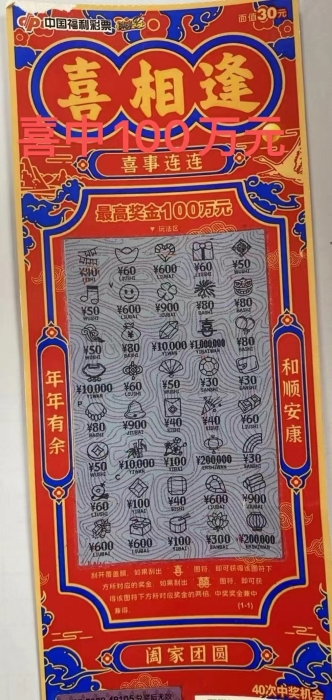 中国福利彩票 刮刮乐 面值30元
喜相逢
喜中100万元
喜事连连
最高奖金100万元
▼ 玩法区
¥30 ¥60 ¥600 ¥60 ¥50
¥50 ¥600 ¥900 ¥80 ¥80
¥50 ¥80 ¥10,000 ¥1,000,000 ¥80
¥10,000 ¥60 ¥50 ¥30 ¥30
¥80 ¥900 ¥40 ¥40 ¥60
¥50 ¥10,000 ¥100 ¥200,000 ¥30
¥60 ¥100 ¥40 ¥600 ¥900
¥600 ¥600 ¥100 ¥300 ¥200,000
年年有余
和顺安康
刮开覆盖膜，如果刮出 喜 图符，即可获得该图符下
方所对应的奖金；如果刮出 囍 图符，即可获
得该图符下方所对应奖金的两倍。中奖奖金兼中
兼得。 (1-1)
阖家团圆
40次中奖机会